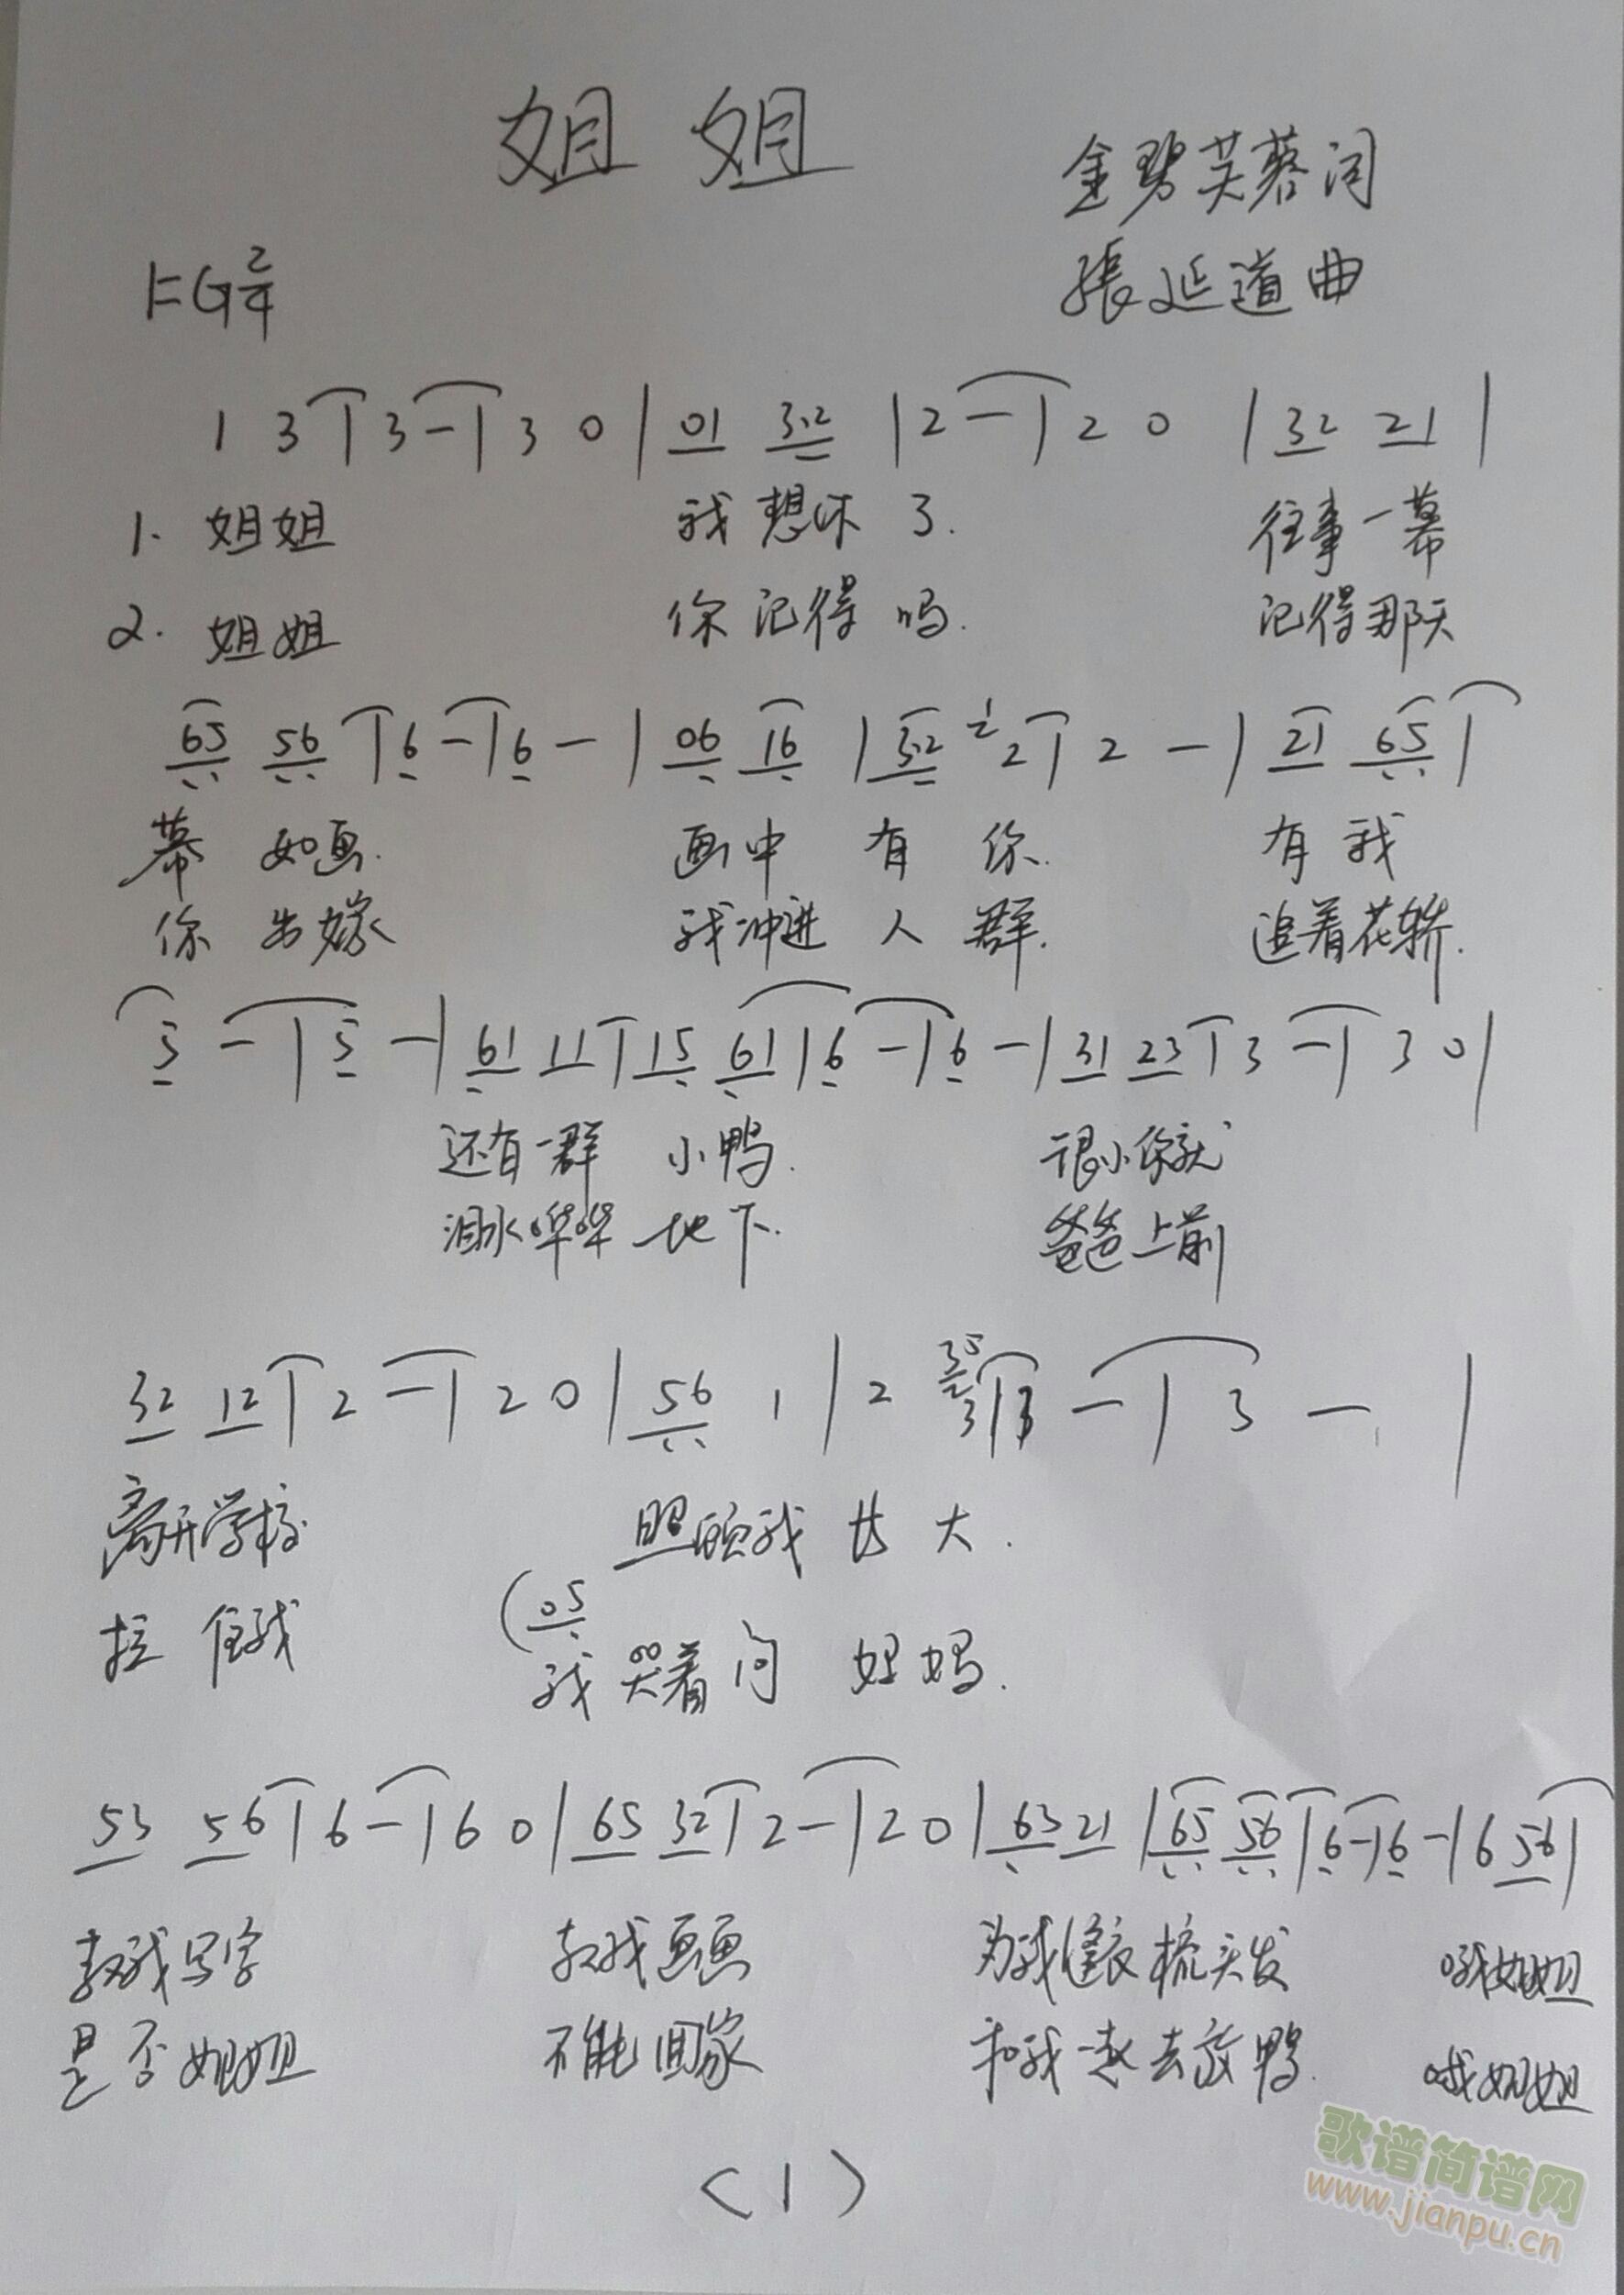 姐姐
金碧芙蓉词
張延道曲
1=G 2/4
1 3 | 3 - | 3 0 | 01 3.2 | 2 - | 2 0 | 32 21 |
1. 姐姐 我想你了. 往事一幕
2. 姐姐 你记得吗. 记得那天
65 56 | 6 - | 6 - | 06 16 | 3.2 2 | 2 - | 21 65 |
幕如画. 画中有你. 有我
你出嫁 我冲进人群. 追着花轿.
5 - | 5 - | 61 11 | 15 61 | 6 - | 6 - | 31 23 | 3 - | 3 0 |
还有一群小鸭. 很小你就
泪水哗哗地下. 爸爸上前
32 12 | 2 - | 2 0 | 56 1 | 2 35 3 | 3 - | 3 - |
离开学校 照顾我长大.
(05
拉住我 我哭着问妈妈.
53 56 | 6 - | 6 0 | 65 32 | 2 - | 2 0 | 63 21 | 65 56 | 6 - | 6 - | 6 56 |
教我写字 教我画画 为我缝衣梳头发 哦姐姐
是否姐姐 不能回家 和我一起去放鸭. 哦姐姐
(1)
歌谱简谱网
www.jianpu.cn